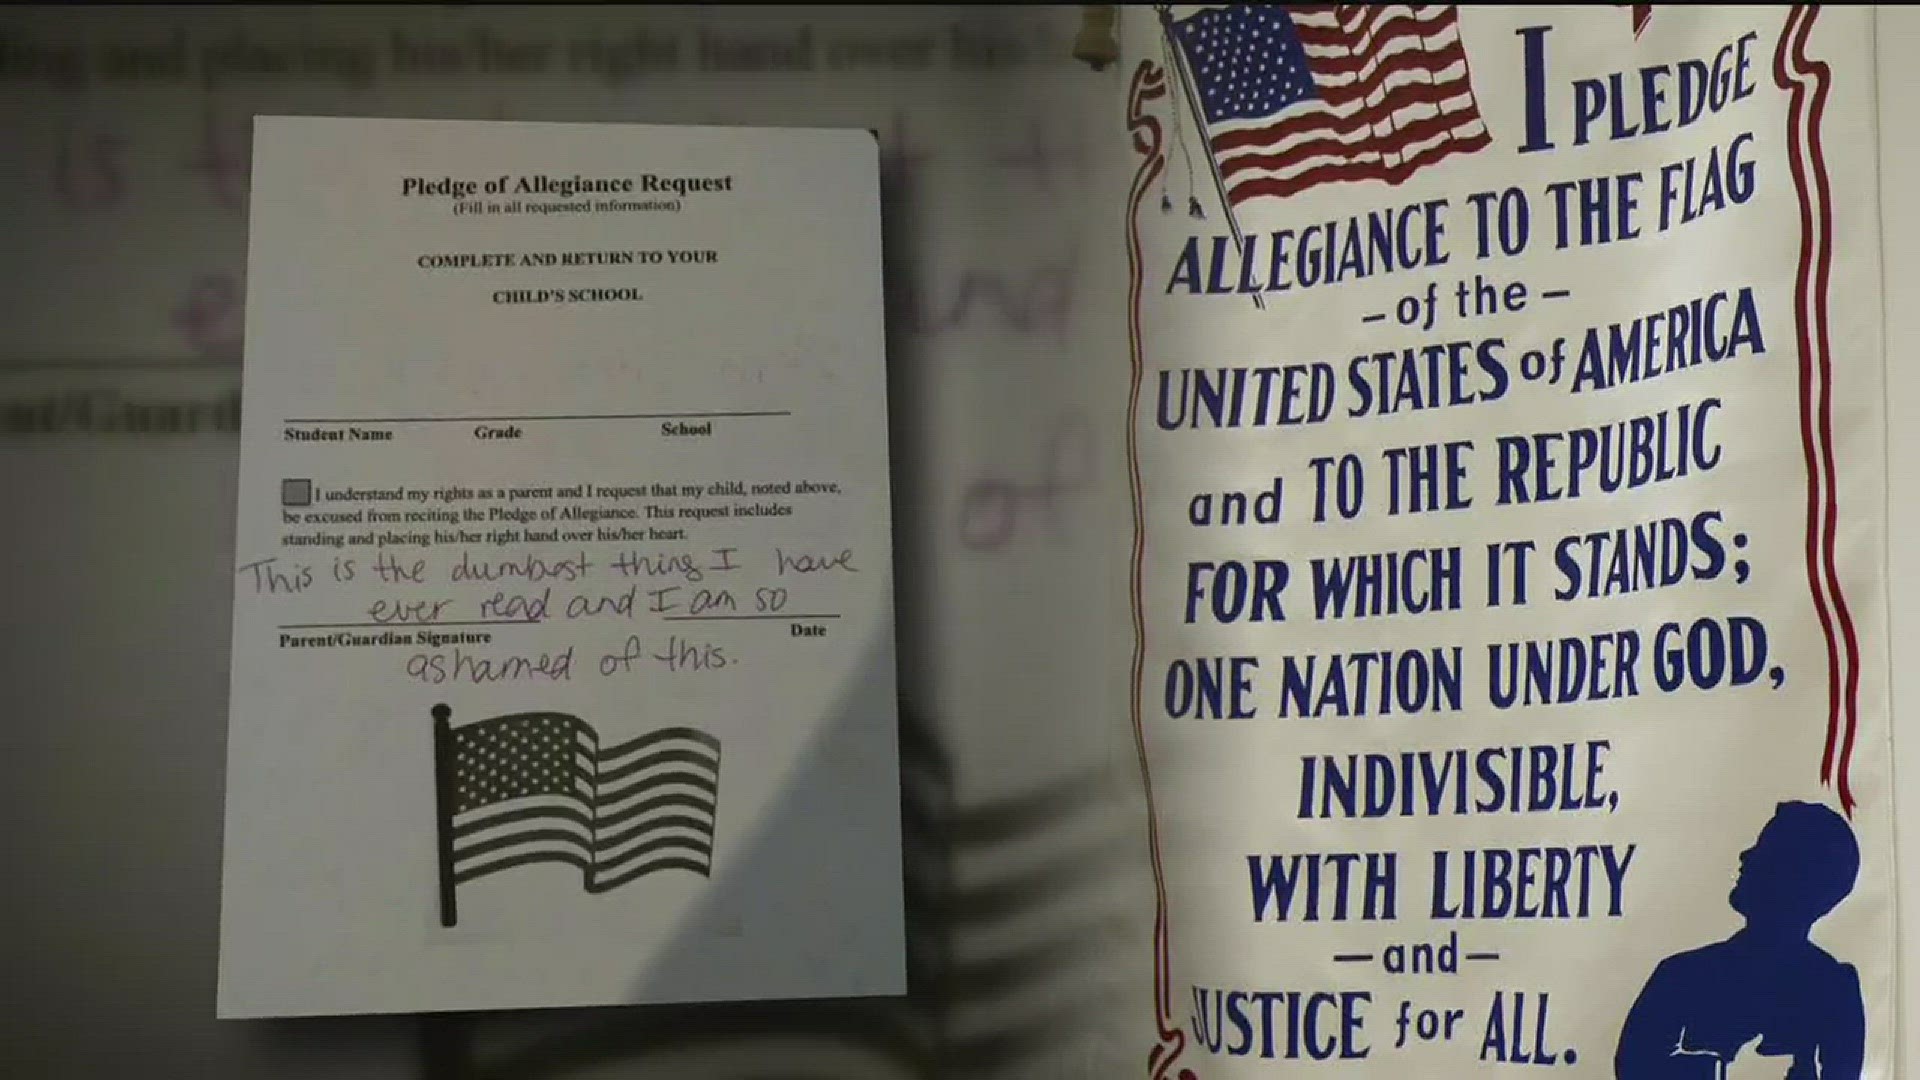 Pledge of Allegiance Request
(Fill in all requested information)
COMPLETE AND RETURN TO YOUR
CHILD'S SCHOOL
Student Name Grade School
I understand my rights as a parent and I request that my child, noted above,
be excused from reciting the Pledge of Allegiance. This request includes
standing and placing his/her right hand over his/her heart.
This is the dumbest thing I have
ever read and I am so
Parent/Guardian Signature Date
ashamed of this.
I PLEDGE
ALLEGIANCE TO THE FLAG
-of the-
UNITED STATES of AMERICA
and TO THE REPUBLIC
FOR WHICH IT STANDS;
ONE NATION UNDER GOD,
INDIVISIBLE,
WITH LIBERTY
-and-
JUSTICE for ALL.
and placing his/her right hand over his/
is
of